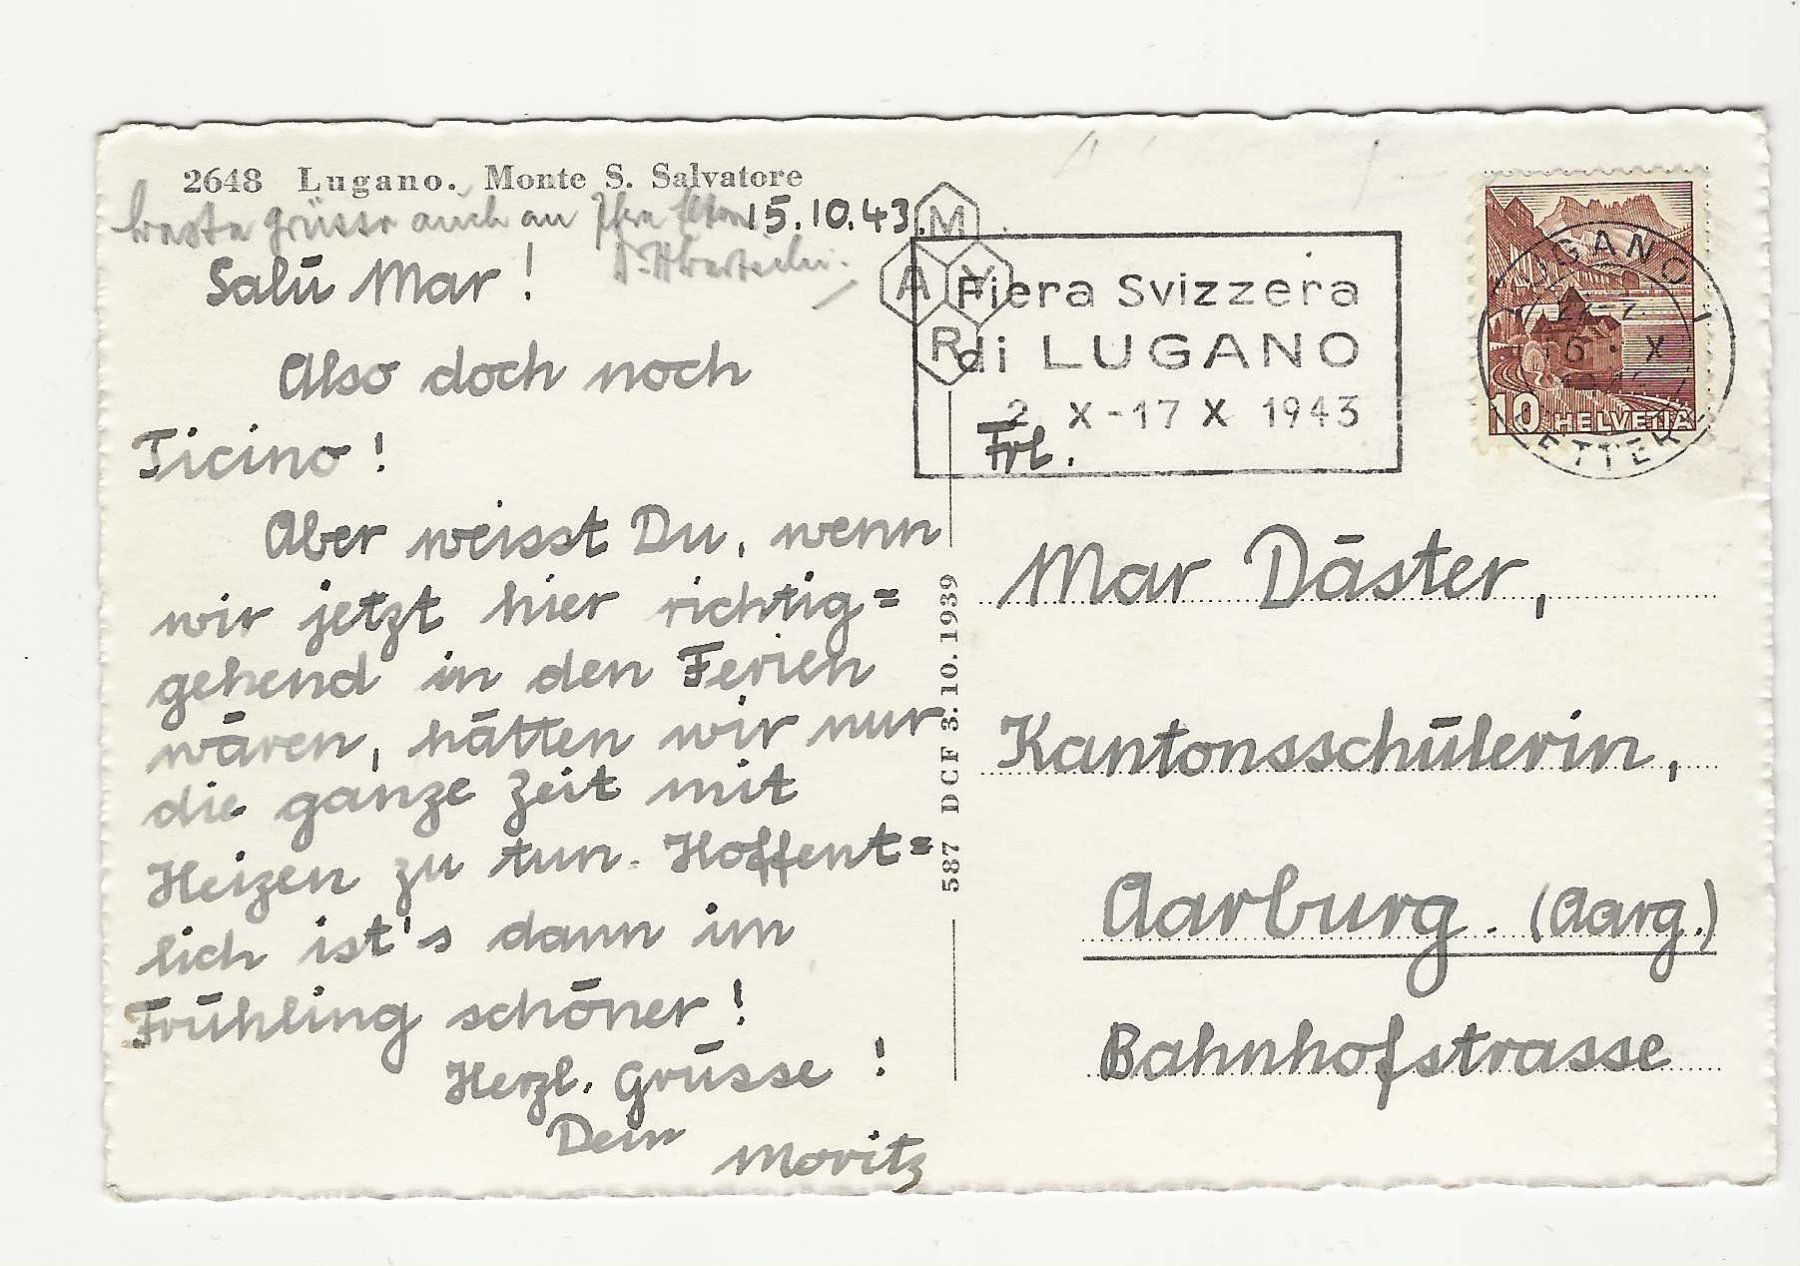 2648 Lugano. Monte S. Salvatore
beste Grüsse auch an Ihre Eltern
15.10.43.
Salü Mar!
Also doch noch
Ticino!
Aber weisst Du, wenn
wir jetzt hier richtig=
gehend in den Ferien
wären, hätten wir nur
die ganze Zeit mit
Heizen zu tun. Hoffent=
lich ist's dann im
Frühling schöner!
Herzl. Grüsse!
Dein
Moritz
587 DCF 3.10.1939
M
A Y
R
Fiera Svizzera
di LUGANO
2 X-17 X 1943
LUGANO 1
HELVETIA
10
Frl.
Mar Däster,
Kantonsschülerin,
Aarburg. (Aarg.)
Bahnhofstrasse